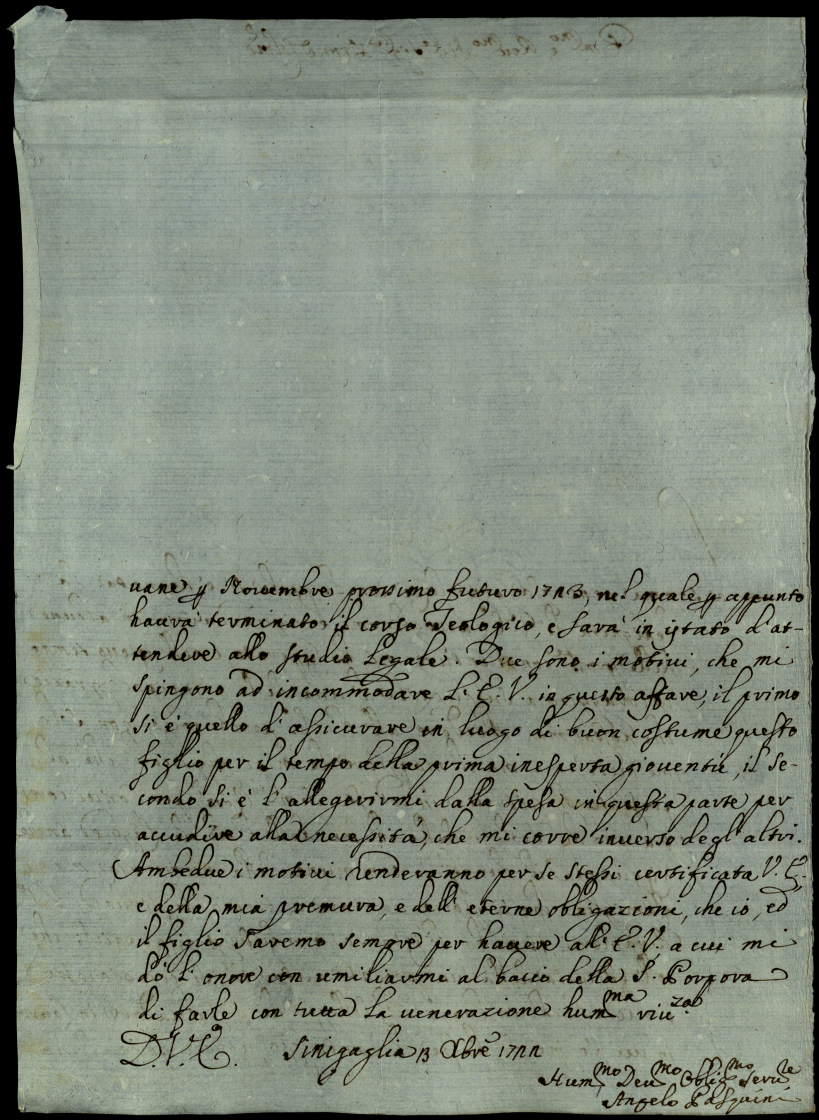 uane p Novembre prossimo futuro 1743, nel quale p appunto
haurà terminato il corso Teologico, e sarà in istato d'at-
tendere allo studio Legale. Due sono i motiui, che mi
spingono ad incommodare L'E. V. in questo affare, il primo
si è quello d'assicurare in luogo di buon costume questo
figlio per il tempo della prima inesperta gioventù, il se-
condo si è l'allegerirmi dalla spesa in questa parte per
accudire alla necessità, che mi corre inuerso degl'altri.
Ambedue i motiui renderanno per se stessi certificata V. E.
e della mia premura, e dell'eterne obligazioni, che io, ed
il figlio saremo sempre per hauere all'E. V. a cui mi
dò l'onore con umiliarmi al bacio della S. Porpora
di farle con tutta la uenerazione hum.ma riu.za
D. V. E.a Sinigaglia 13 Xbre 1742
Hum.mo Deu.mo Oblig.mo Seru.re
Angelo Pasquini